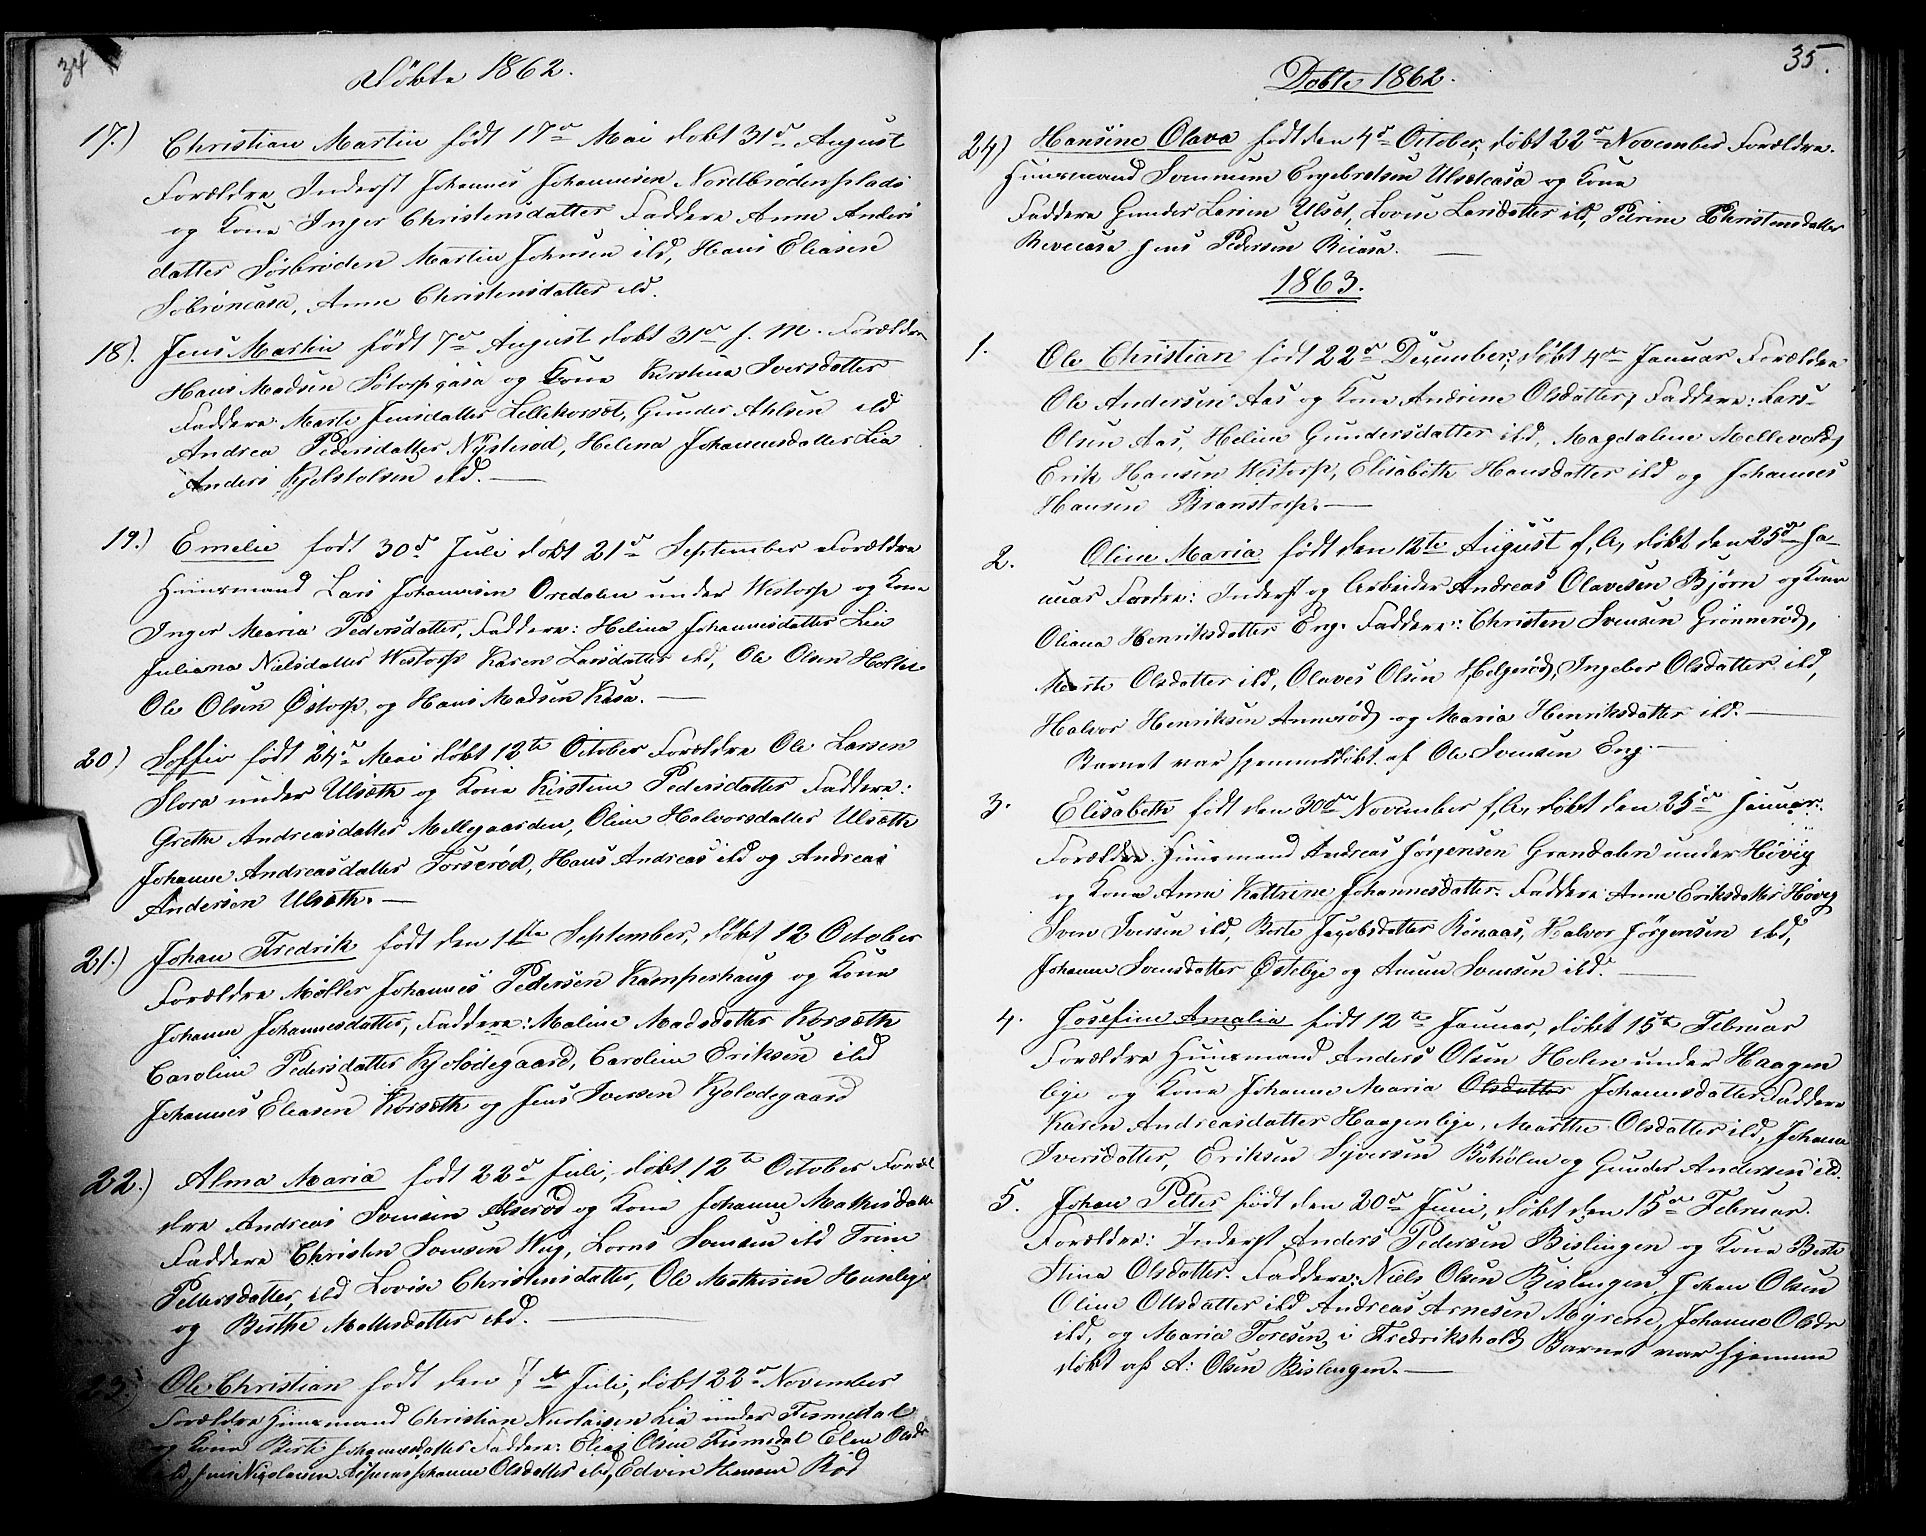 34
Döbte 1862.
17.) Christian Martin född 17de Mai döbt 31de August
Forældre Inderst Johannes Johannesen Nordbrödenplads
og Kone Inger Christensdatter Faddere Anne Anders
datter Sörbröden Martin Johnsen ibd, Hans Eliasen
Anne Christensdatter ibd.
18). Jens Martin födt 7de August döbt 31de s. M. Forældre
Hans Madsen og Kone Kirstine Iversdatter
Faddere Marte Jensdatter Lillekorsæt, Gunder Ahlsen ibd
Andrea Pedersdatter Nysteröd, Helena Johannesdatter Lia
Anders Kjelstolsen ibd.
19.) Emelie födt 30d Juli döbt 21de September Forældre
Huusmand Lars Johannesen Oredalen under Westorp og Kone
Inger Maria Pedersdatter, Faddere: Helina Johannesdatter Lie
Juliana Nielsdatter Westorp Karen Larsdatter ibd, Ole Olsen
Ole Olsen Östorp, og Hans Madsen Kasa.
20) Soffie födt 24de Mai döbt 12te October Forældre Ole Larsen
Flora under Ulsæth og Kone Kirstine Pedersdatter Faddere:
Grethe Andreasdatter Mellegaarden, Oline Halvorsdatter Ulsæth
Johanne Andreasdatter Torseröd, Hans Andreas ibd og Andreas
Andersen Ulsæth.
21.) Johan Fredrik födt den 1ste September, döbt 12 October
Forældre Møller Johannes Pedersen Kamperhaug og Kone
Johanne Johannesdatter, Faddere: Maline Madsdatter Korsæth
Caroline Pedersdatter Kjolödegaard, Caroline Eriksen ibd
Johannes Eleasen Korsæth og Jens Iversen Kjolodegaard
22.) Alma Maria födt 22de Juli, döbt 12te October Foræl
dre Andreas Svensen og Kone Johanne Mathisdatter
Faddere Christen Svensen Wug, Lorns Svensen ibd Trine
Pettersdatter, ibd Lovise Christensdatter, Ole Mathisen
og Birthe Mattesdatter ibd.
23.) Ole Christian födt den 7de Juli, döbt 22de November
Forældre Huusmand Christian Nicolaisen Lia under Tismetal
og Kone Berte Johannesdatter Faddere: Elias Olsen Tismedal Elen
ibd, Jens Nicolaisen Johanne Olsdatter ibd, Edvin Hansen Röd
35.
Dobte 1862.
24) Hansine Olava födt den 4de October, döbt 22de November Forældre.
Huusmand Svennum Engebretsen Ulsætcasa og Kone
Faddere Gunder Larsen Ulsæt, Lovise Larsdatter ibd, Petrine Christensdatter
Revecasa Jens Pedersen
1863.
1. Ole Christian födt 22de December, döbt 4de Januar Forældre
Ole Andersen Aas og Kone Andrine Olsdatter, Faddere: Lars
Olsen Aas, Heline Gundersdatter ibd, Magdalene Mellevold,
Erik Hansen Westorp, Elisabeth Hansdatter ibd og Johannes
Hansen Branstorp.
2. Oline Maria födt den 12te August f. A, döbt den 25de Ja-
nuar Foreldre: Inderst og Arbeider Andreas Olavesen Bjørn og Kone
Oliana Henriksdatter Eng. Faddere: Christen Svensen Grönneröd,
Marte Olsdatter ibd, Olaves Olsen Helgeröd, Ingebor Olsdatter ibd,
Halvor Henriksen Anneröd og Maria Henriksdatter ibd.
Barnet var hjemmedöbt af Ole Svensen Eng.
3. Elisabeth födt den 30te November f. A. döbt den 25de Januar.
Forældre Huusmand Andreas Jörgensen Grandalen under Hövig
og Kone Anne Kattrine Johannesdatter. Faddere Anne Eriksdatter Hövig
Sven Svensen ibd, Berte Jacobsdatter Rönaas, Halvor Jörgensen ibd,
Johanne Svensdatter Östebye og Amun Svensen ibd.
4. Josefine Amalia födt 12te Januar, döbt 15te Februar
Forældre Huusmand Anders Olsen Holen under Haagen
bye og Kone Johanne Maria Olsdatter Johannesdatter Faddere
Karen Andreasdatter Haagenbye, Marthe Olsdatter ibd, Johanne
Iversdatter, Eriksen Syversen Bökölen og Gunder Andersen ibd.
5. Johan Petter födt den 20de Juni, döbt den 15de Februar.
Forældre: Inderst Anders Pedersen Bislingen og Kone Berte
Stina Olsdatter. Faddere: Niels Olsen Bislengen, Johan Olsen
Oline Olsdatter ibd Andreas Arnesen Myrene, Johanne Olsdr
ibd, og Maria Toresen, i Fredrikshald Barnet var hjemme
döbt af A: Olsen Bislengen.